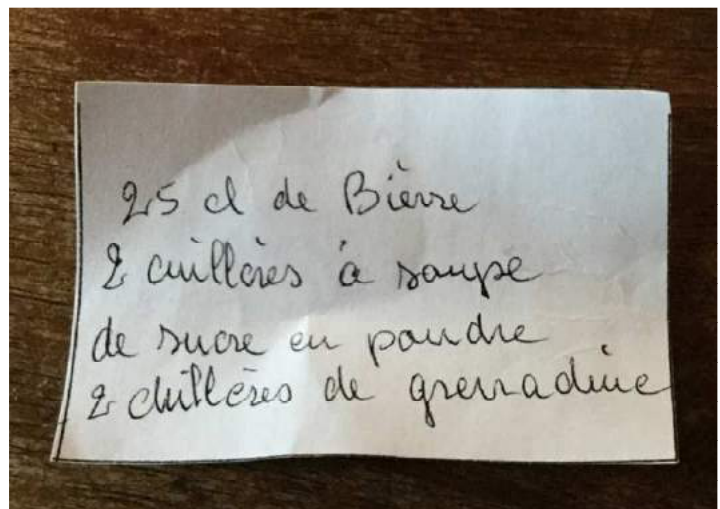 25 cl de Bièrre
2 cuillères à soupe
de sucre en poudre
2 cuillères de grenadine